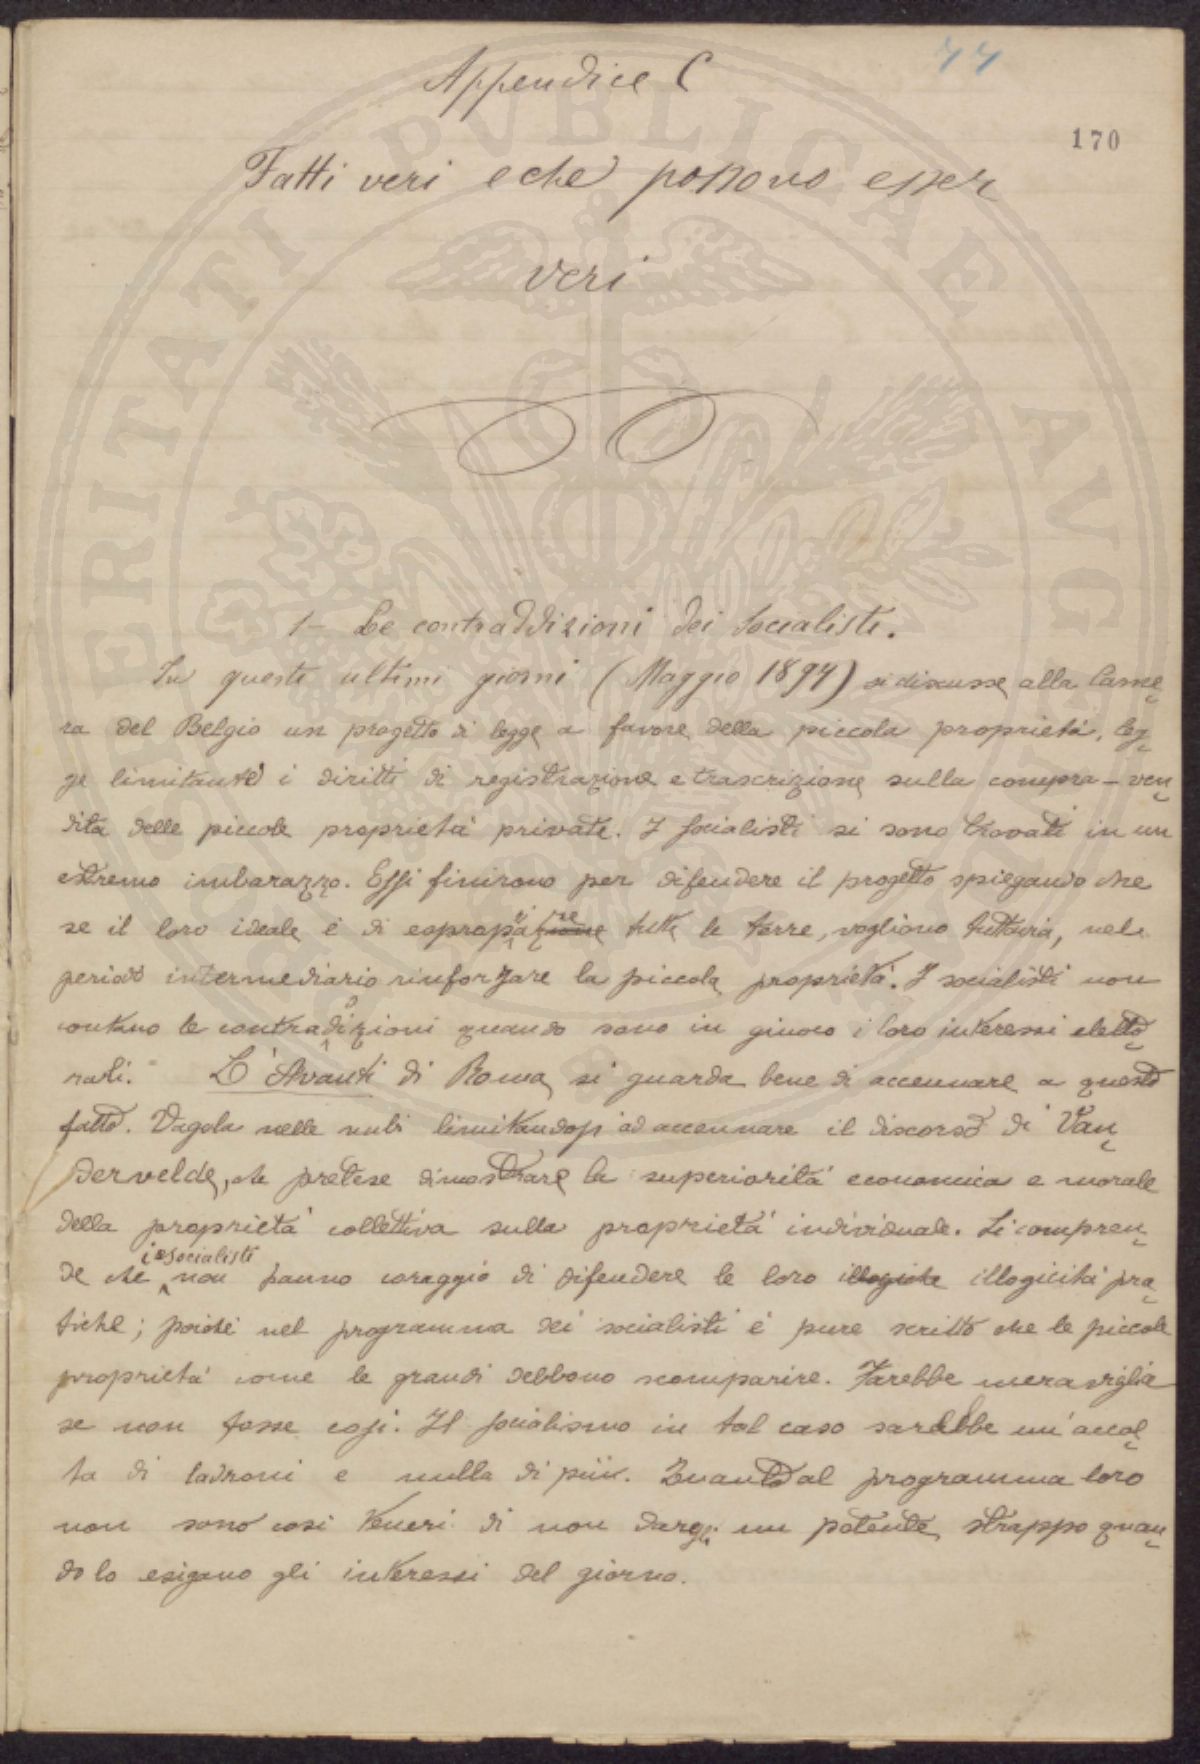 Appendice C
77
170
Fatti veri e che possono esser
veri
1- Le contraddizioni dei Socialisti.
In questi ultimi giorni (Maggio 1897) si discusse alla Came-
ra del Belgio un progetto di legge a favore della piccola proprietà, leg-
ge limitante i diritti di registrazione e trascrizione sulla compra-ven-
dita delle piccole proprietà private. I socialisti si sono trovati in un
estremo imbarazzo. Essi finirono per difendere il progetto spiegando che
se il loro ideale è di espropriare tutte le terre, vogliono tuttavia, nel
periodo intermediario rinforzare la piccola proprietà. I socialisti non
contano le contraddizioni quando sono in giuoco i loro interessi eletto-
rali. L'Avanti di Roma si guarda bene di accennare a questo
fatto. Vagola nelle nubi limitandosi ad accennare il discorso di Van-
dervelde, che pretese dimostrare la superiorità economica e morale
della proprietà collettiva sulla proprietà individuale. Si compren-
de che i socialisti non hanno coraggio di difendere le loro illogiche illogicità pra-
tiche; poiché nel programma dei socialisti è pure scritto che le piccole
proprietà come le grandi debbono scomparire. Farebbe meraviglia
se non fosse così. Il socialismo in tal caso sarebbe un'accol-
ta di ladroni e nulla di più. Quanto al programma loro
non sono così teneri di non dargli un potente strappo quan-
do lo esigano gli interessi del giorno.